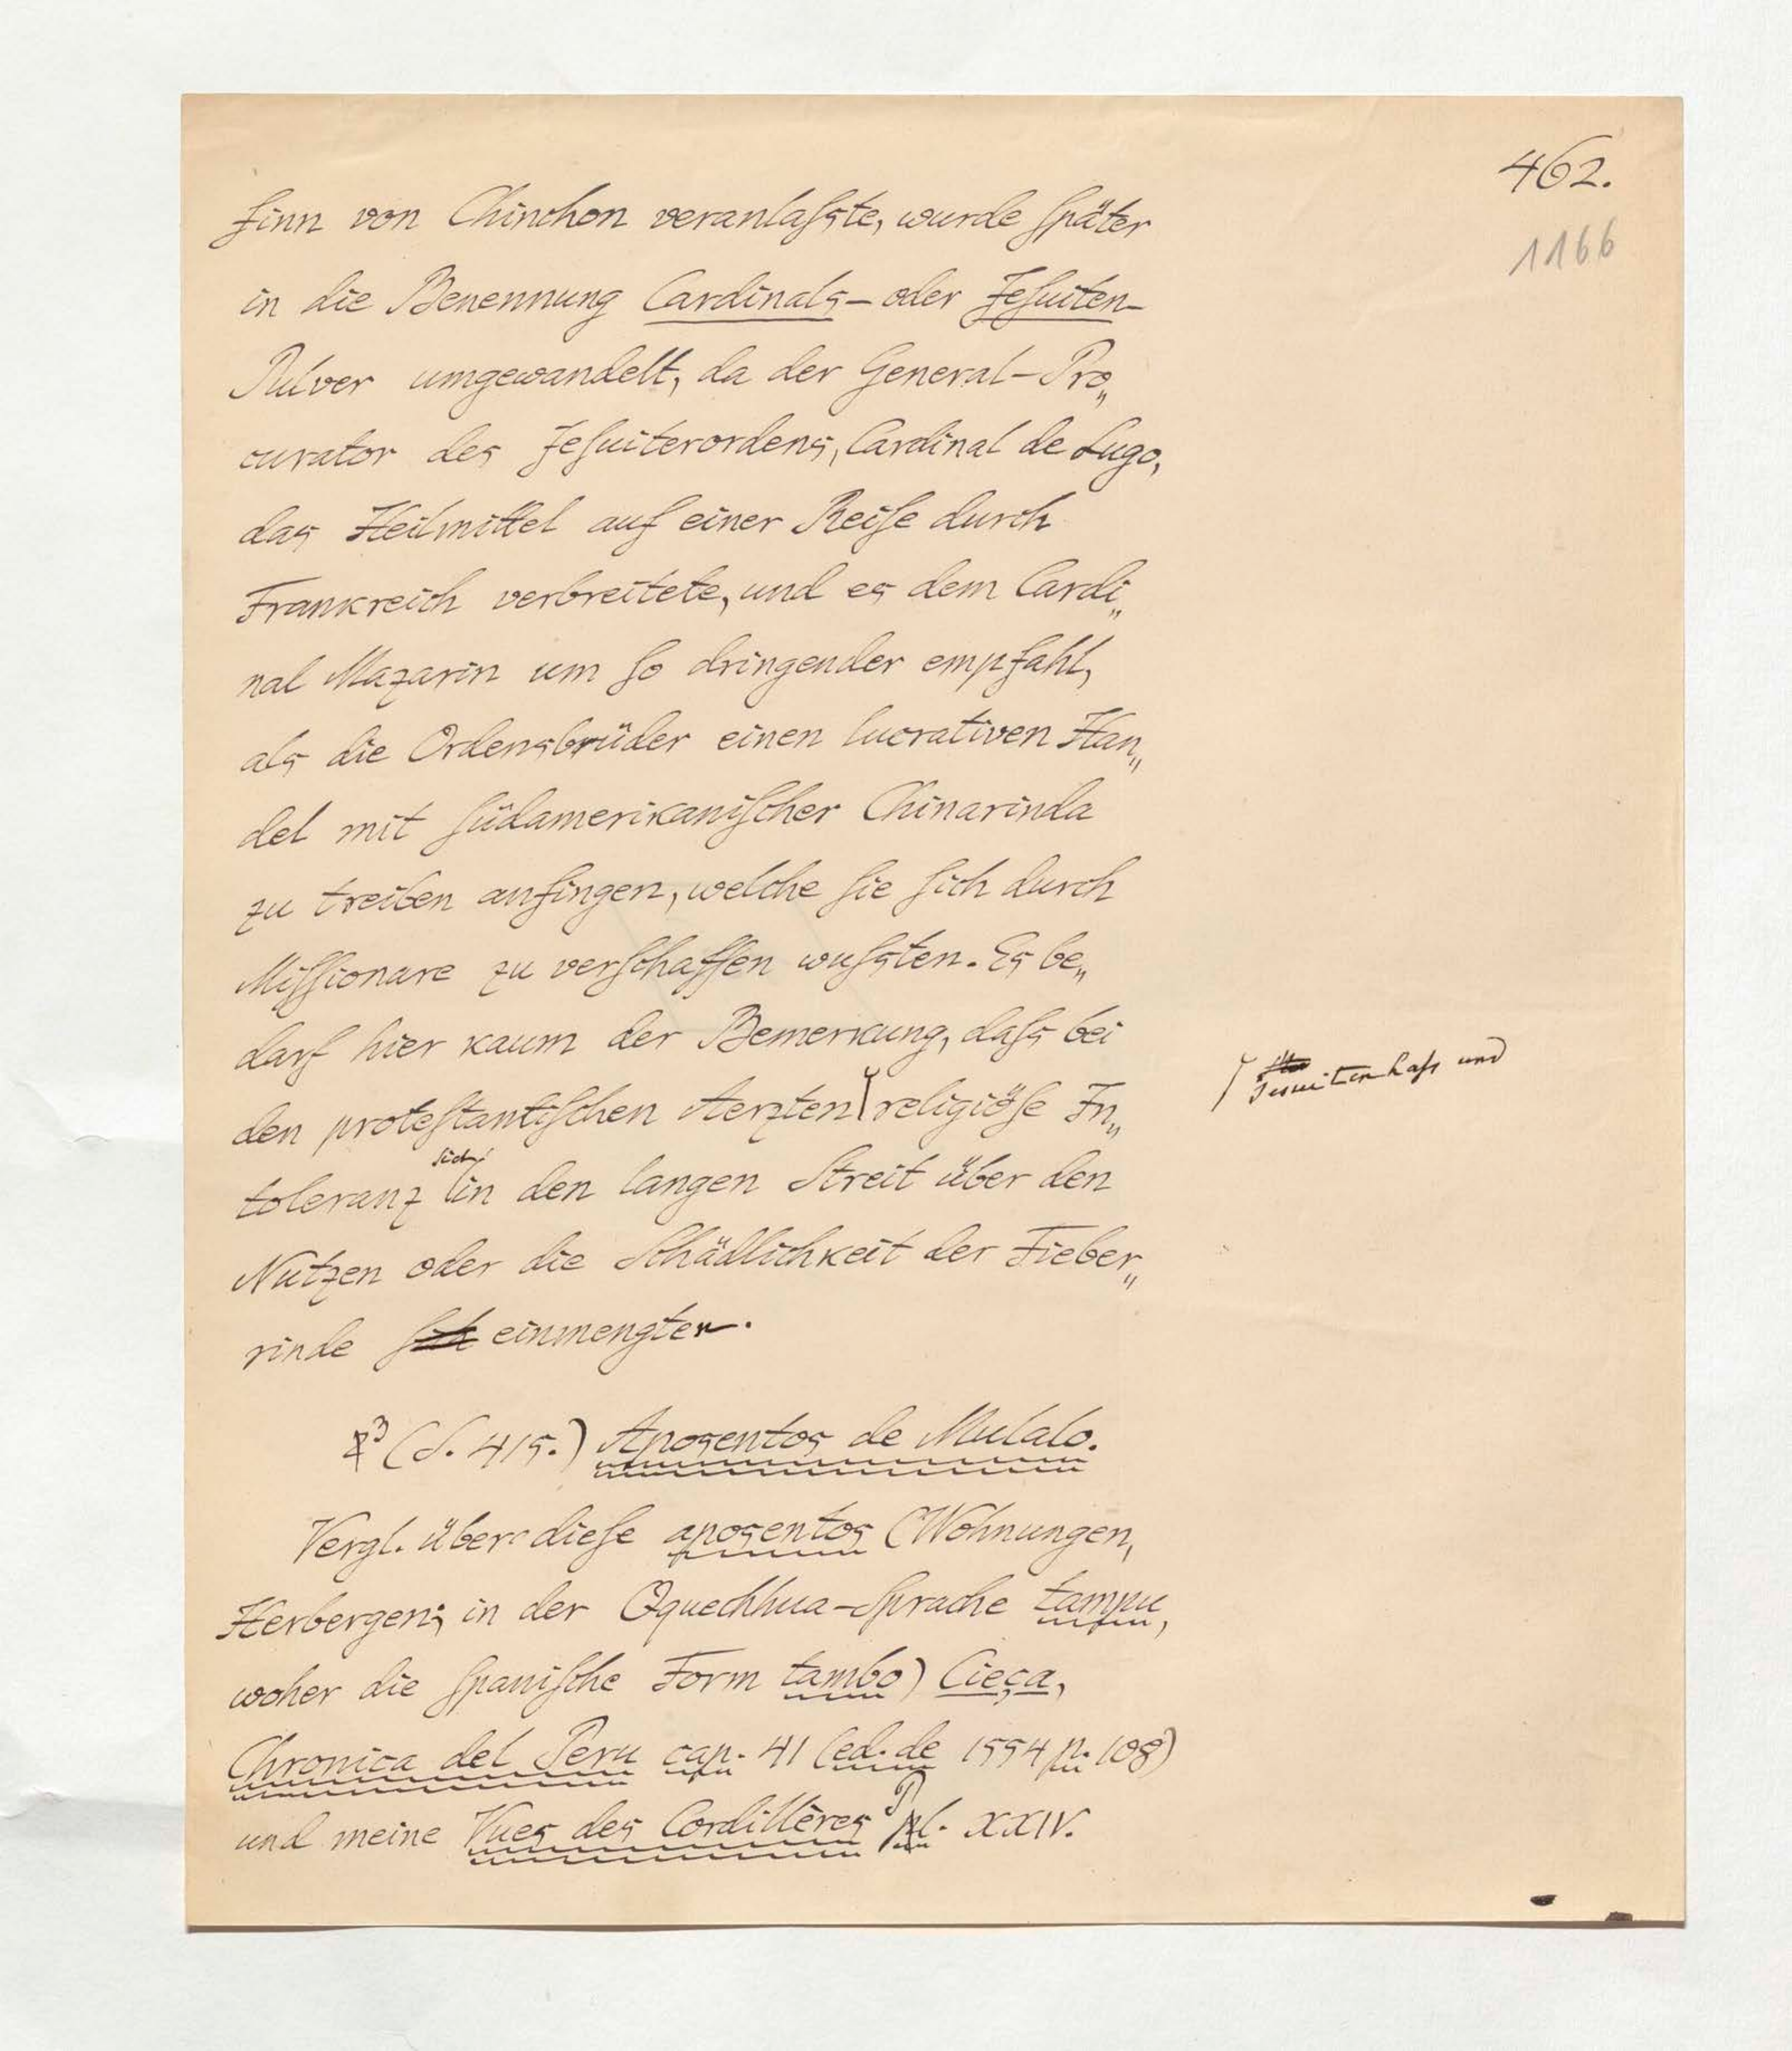 462.
1166
finn von Chinchon veranlaſste, wurde ſpäter
in die Benennung Cardinals- oder Jeſuiten-
Pulver umgewandelt, da der General-Pro„
curator des Jeſuiterordens, Cardinal de Lugo,
das Heilmittel auf einer Reiſe durch
Frankreich verbreitete, und es dem Cardi„
nal Mazarin um ſo dringender empfahl,
als die Ordensbrüder einen lucrativen Han„
del mit ſüdamerikaniſcher Chinarinda
zu treiben anfingen, welche ſie ſich durch
Miſſionare zu verſchaffen wuſsten. Es be„
darf hier kaum der Bemerkung, daſs bei
den proteſtantiſchen Aerzten religiöſe In„
Jesuitenhaſs und
sich
toleranz in den langen Streit über den
Nutzen oder die Schädlichkeit der Fieber„
rinde ſich einmengten.
3 (S. 415.) Aposentos de Mulalo.
Vergl. über dieſe aposentos (Wohnungen,
Herbergen; in der Qquechhua-Sprache tampu,
woher die ſpaniſche Form tambo) Cieça,
Chronica del Peru cap. 41 (ed. de 1554 p. 108)
und meine Vues des Cordillères Pl. XXIV.